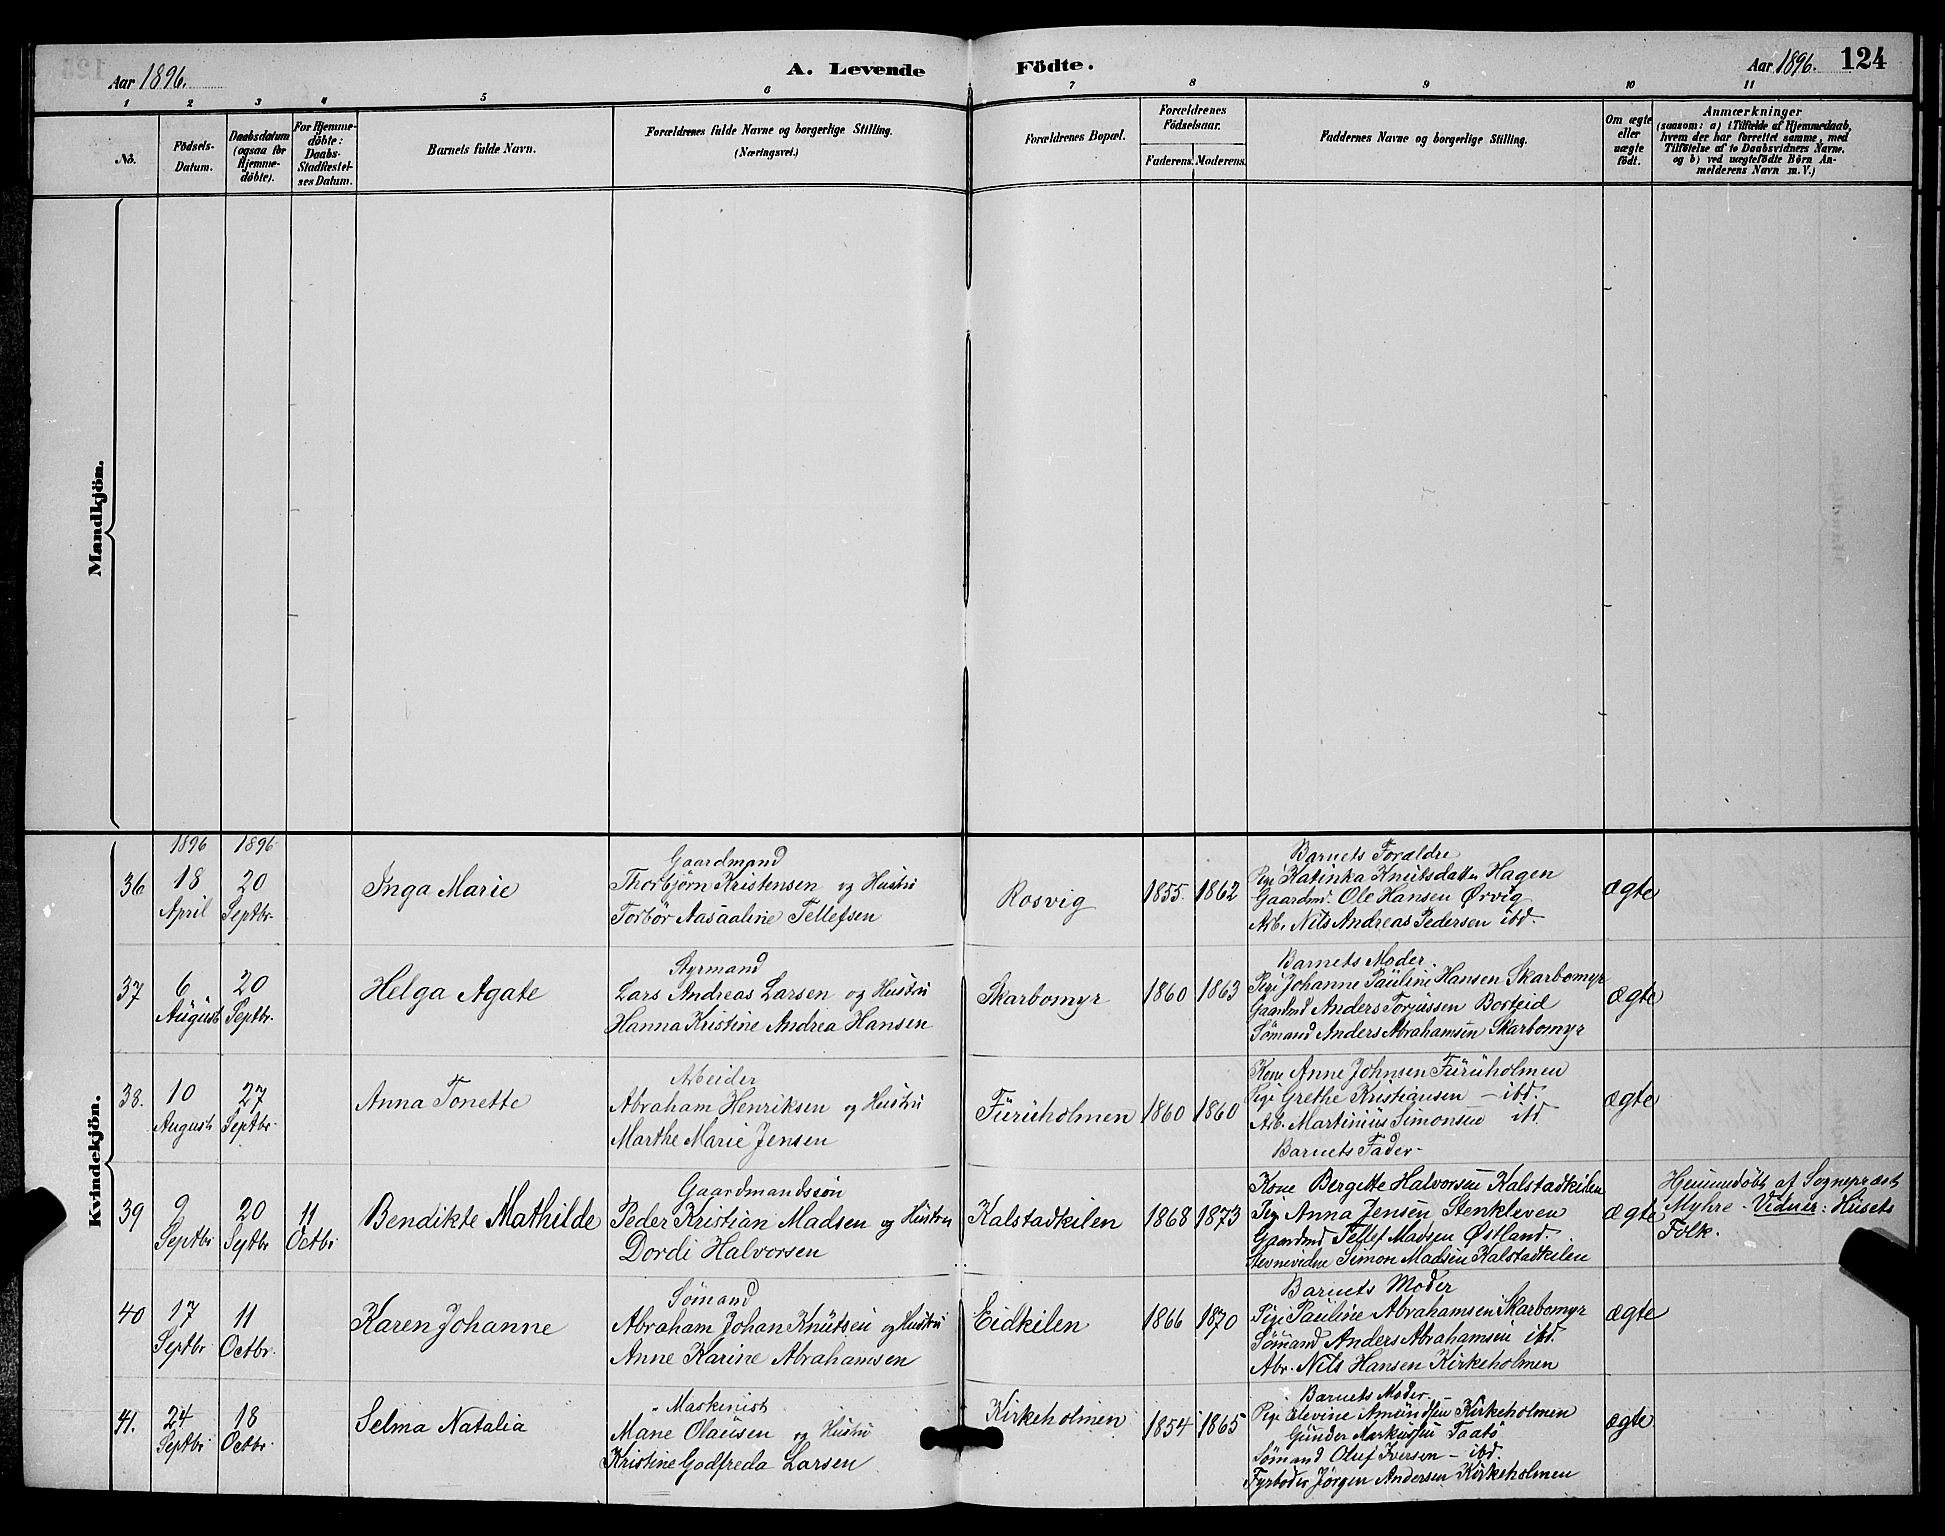 Aar 1896.
A. Levende Födte.
Aar 1896. 124
1 2 3 4 5 6 7 8 9 10 11
No.
Födsels-
Datum.
Daabsdatum
(ogsaa for
Hjemme-
döbte).
For Hjemme-
döbte:
Daabs-
Stadfæstel-
ses Datum.
Barnets fulde Navn.
Forældrenes fulde Navne og borgerlige Stilling.
(Næringsvei.)
Forældrenes Bopæl.
Forældrenes
Födselsaar.
Faderens. Moderens.
Faddernes Navne og borgerlige Stilling.
Om ægte
eller
uægte
födt.
Anmærkninger
(saasom: a) i Tilfælde af Hjemmedaab,
hvem der har forrettet samme, med
Tilföielse af to Daabsvidners Navne,
og b) ved uægtefödte Börn An-
melderens Navn m. V.)
Mandkjön.
Kvindekjön.
1896 1896
36
18
April
20
Septbr.
Inga Marie
Gaardmand
Thorbjörn Kristensen og Hustru
Torbör Aasaaline Tellefsen
Rosvig
1855. 1862
Barnets Forældre
Pige Katinka Knutsdatter Hagen
Gaardmd. Ole Hansen Ørvig
Arb. Nils Andreas Pedersen ibd.
ægte
37
6
August
20
Septbr.
Helga Agate
Styrmand
Lars Andreas Larsen og Hustru
Hanna Kristine Andrea Hansen
Skarbomyr
1860 1863
Barnets Moder.
Pige Johanne Pauline Hansen Skarbomyr
Gaardmd Anders Torjussen Borteid
Sømand Anders Abrahamsen Skarbomyr
ægte
38.
10
August
27
Septbr.
Anna Tonette
Arbeider
Abraham Henriksen og Hustru
Marthe Marie Jensen
Furuholmen
1860 1860
Kone Anne Johnsen Furuholmen
Pige Grethe Kristiansen – ibd.
Arb. Martinius Simonsen ibd
Barnets Fader.
ægte
39
9
Septbr
20
Septbr
11
Octbr
Bendikte Mathilde
Gaardmandssön
Peder Kristian Madsen og Hustru
Dordi Halvorsen
Kalstadkilen
1868 1873
Kone Bergitte Halvorsen Kalstadkilen
Pige Anna Jensen Stenkleven
Gaardmd Tellef Madsen Østland.
Stevnevidne Simon Madsen Kalstadkilen
ægte
Hjemmdöbt af Sognepræst
Myhre. Vidner: Husets
Folk.
40
17
Septbr.
11
Octbr.
Karen Johanne
Sømand
Abraham Johan Knutsen og Hustru
Anne Karine Abrahamsen
Eidkilen
1866 1870
Barnets Moder
Pige Pauline Abrahamsen Skarbomyr
Sømand Anders Abrahamsen ibd.
Abr. Nils Hansen Kirkeholmen
ægte
41.
24
Septbr
18
Octbr.
Selma Natalia
Maskinist
Mane Olausen og Hustru
Kristine Godfreda Larsen
Kirkeholmen
1854 1865
Barnets Moder.
Pige Elevine Amundsen Kirkeholmen
Gunder Markussen Taatø
Sømand Oluf Iversen – ibd.
Fyrbøder Jørgen Andersen Kirkeholmen
ægte